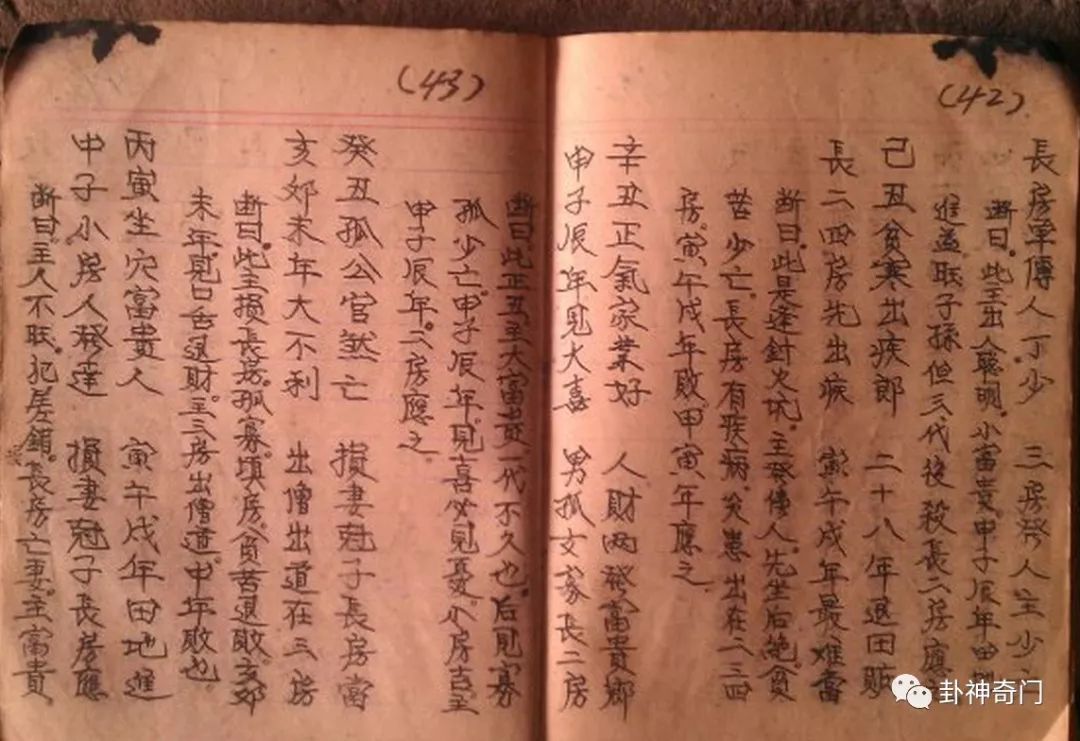 (42)
長房單傳人丁少 三房發人主少
断曰。此主出人聰明。小富貴。申子辰年田地
進益旺子孫但三代後殺長二房應
己丑貧寒出疾郎 二十八年退田
長二四房先出疾 寅午戌年最难當
断曰。此是逢針火坑。主發傳人。先生后绝。貧
苦少亡。長房有疾病。災患出在二三四
房。寅午戌年敗甲寅年應之
辛丑正氣家業好 人財両發富貴郷
申子辰年見大喜 男孤女寡長二房
(43)
断曰此正丑主大富貴一代不久也。后見寡
孤少亡。申子辰年。見喜必見憂。小房吉主
申子辰年。二房應之。
癸丑孤公官煞亡 損妻冠子長房當
亥卯未年大不利 出僧出道在三房
断曰。此主損長房。孤寡填房。贠苦退敗。亥卯
未年。見口舌退財。主三房出僧道。中年敗也
丙寅坐穴富貴人 寅午戌年田地進
申子小房人發達 損妻冠子長房應
断曰。主人不旺。犯差錯。長房亡妻。主富貴。
卦神奇门